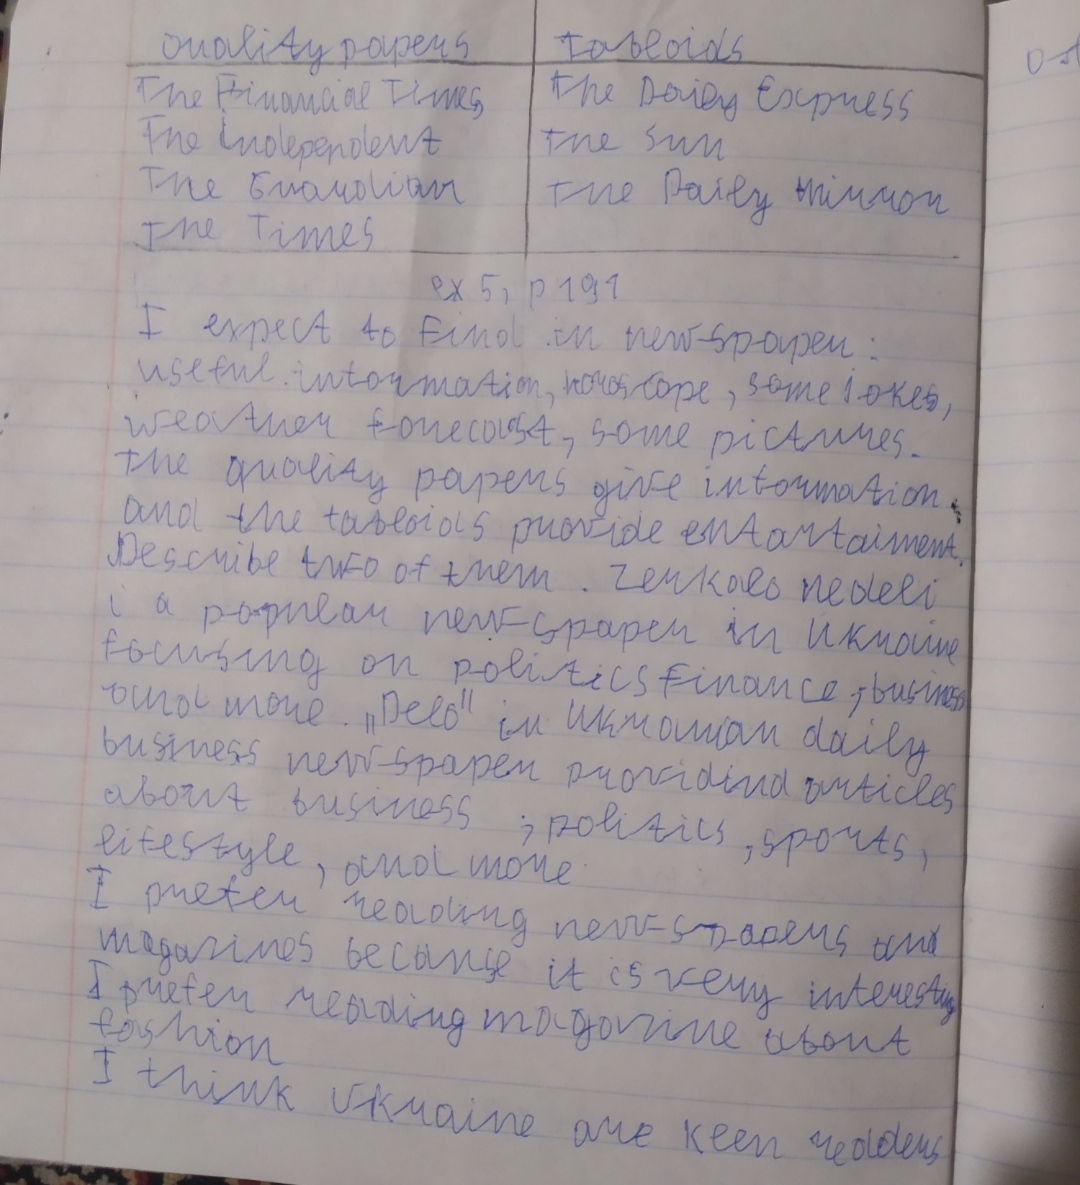 Quality papers Tabloids
The Financial Times The Daily Express
The Independent The Sun
The Guardian The Daily Mirror
The Times
ex 5, p 191
I expect to find in newspaper:
useful information, horoscope, some jokes,
weather forecast, some pictures.
The quality papers give information
and the tabloids provide entartaiment.
Describe two of them. Zerkalo nedeli
i a popular newspaper in Ukraine
focusing on politics finance, business
and more. „Delo" in Ukrainian daily
business newspaper providind articles
about business, politics, sports,
lifestyle, and more
I prefer reading newspapers and
magazines because it is very interesting
I prefer reading magazine about
fashion
I think Ukraine are keen readers